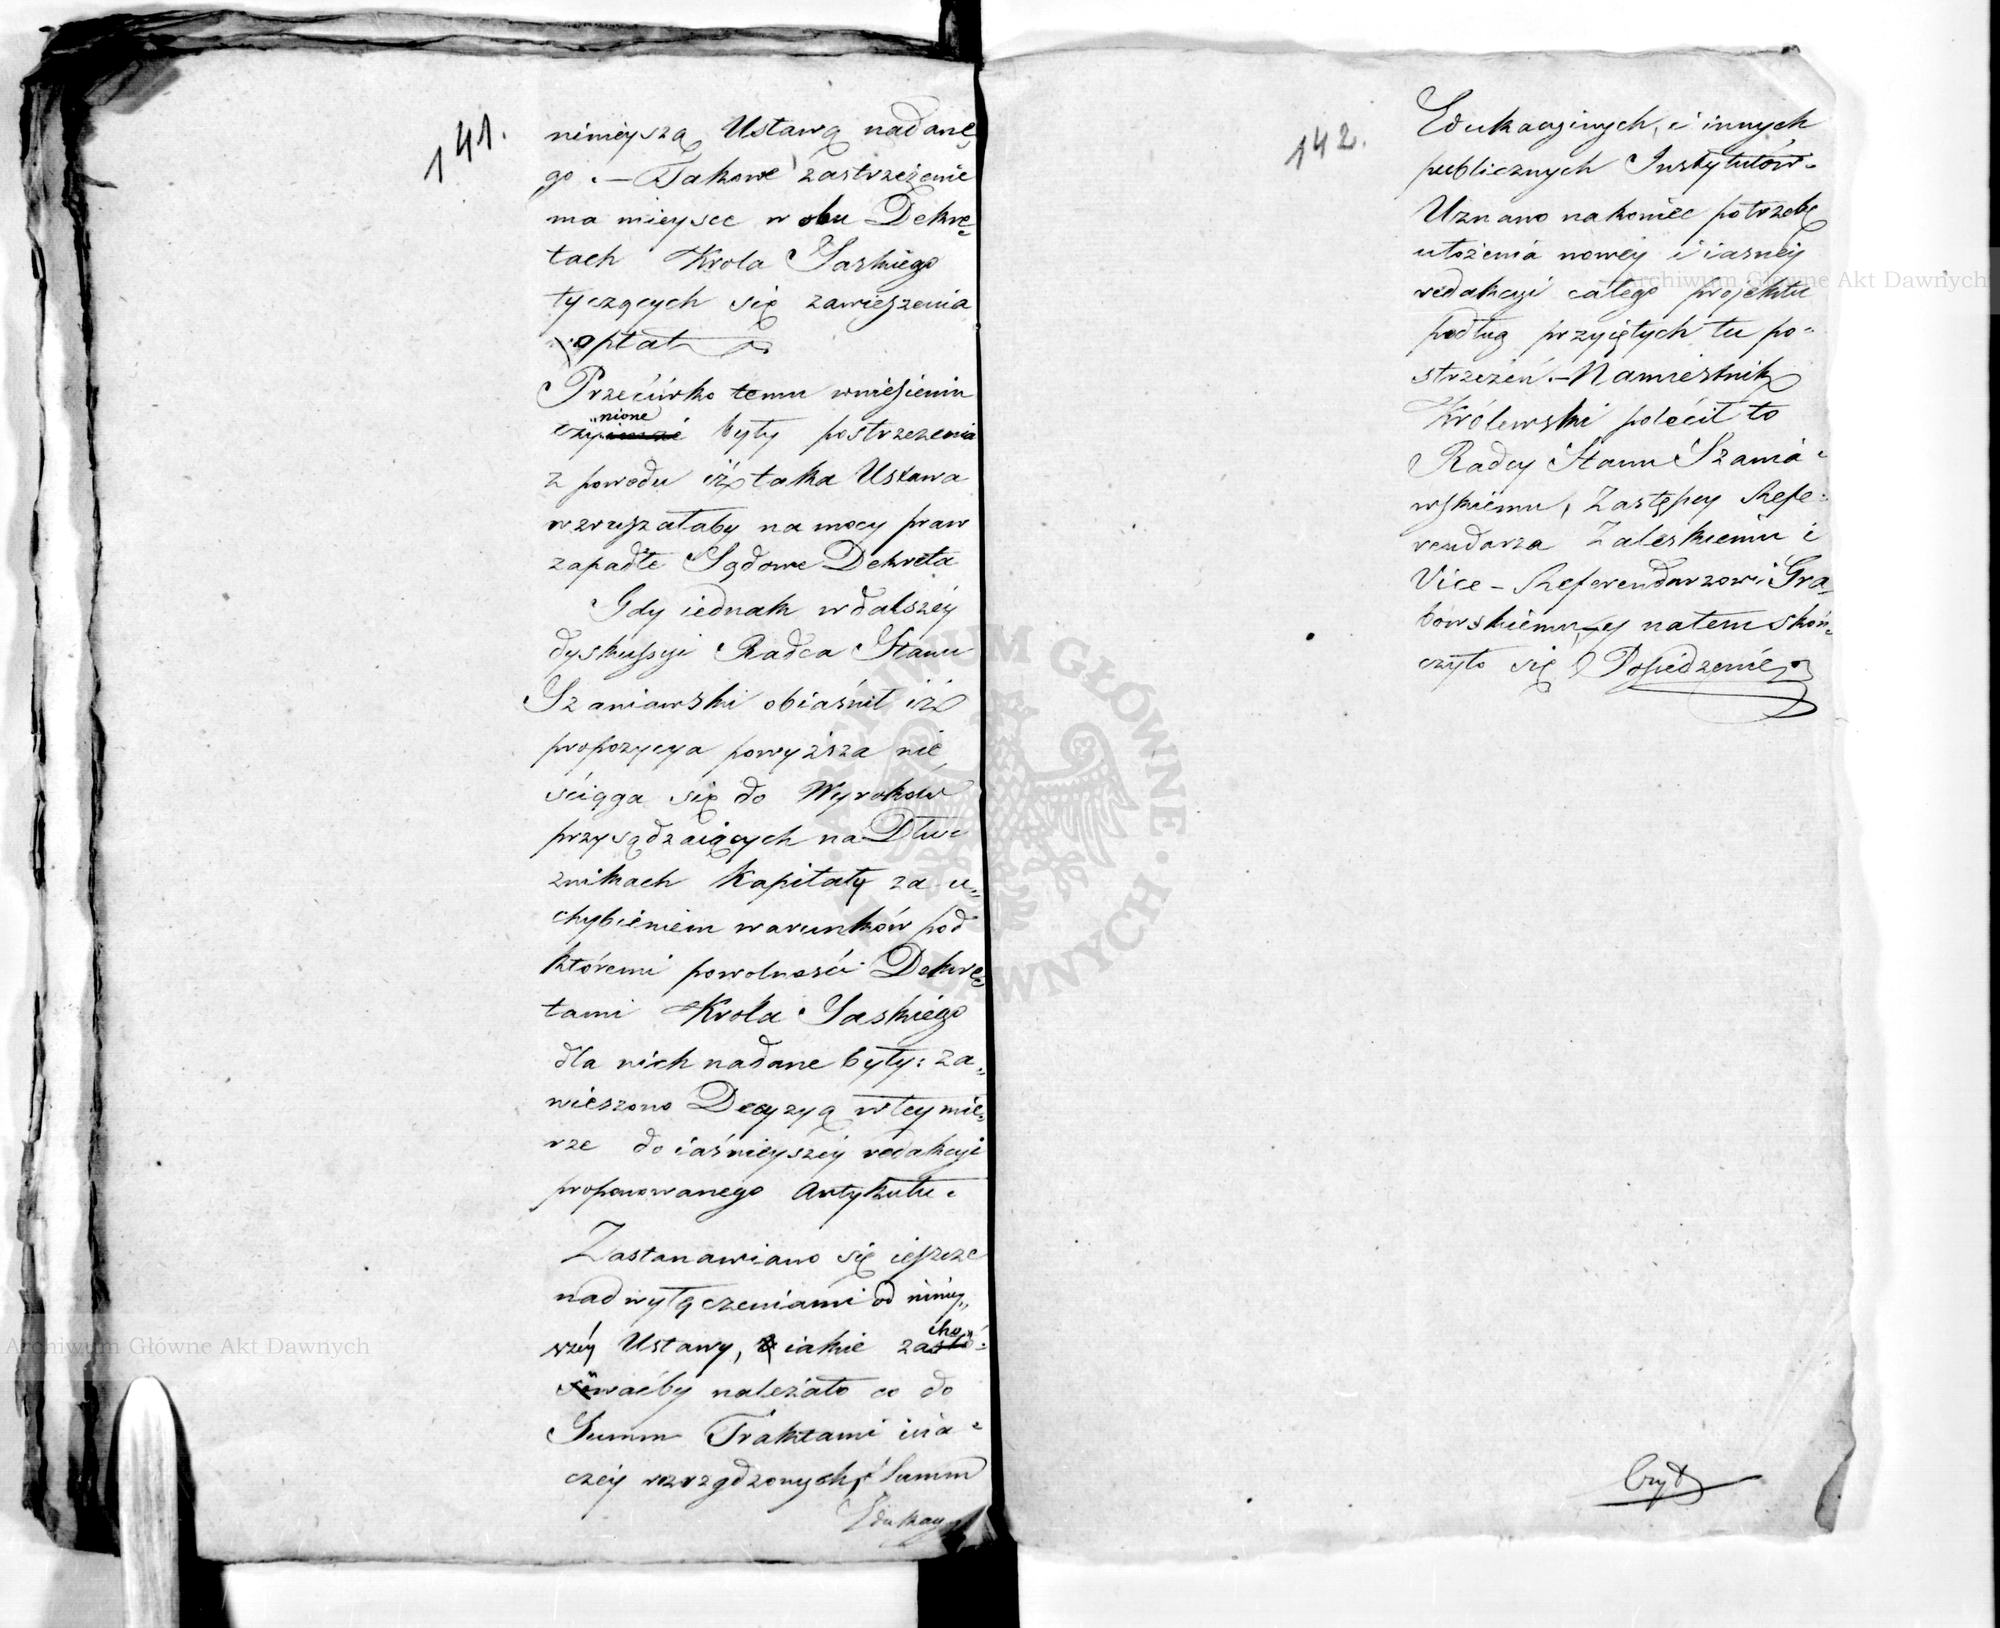 141.
ninieyszą Ustawą nadane,,
go. — Takowe zastrzeżenie
ma mieysce w obu Dekre=
tach Krola Saskiego
tyczących się zawieszenia
opłat
Przeciwko temu wniesieniu
czy,,nione były postrzezenia
z powodu iż taka Ustawa
wzruszałaby na mocy praw
zapadłe Sądowe Dekreta
Gdy iednak w dalszéy
dyskussyi Radca Stanu
Szaniawski obiaśnił iż
propozycya powyższa nie
ściąga się do Wyrokow
przysądzaiących na Dłu=
znikach Kapitały za u=
chybieniem warunków pod
któremi powolności Dekre=
tami Krola Saskiego
dla nich nadane były: za=
wieszono Decyzyą w tey mie=
rze do iaśnieyszéy redakcyi
proponowanego Artykułu.
Zastanawiano się ieszcze
nad wyłączeniami od niniey,,
széy Ustawy, iakie zacho,,
waćby należało co do
Summ Traktami ina=
czéy rozrządzonych, Summ
Edukacy
142.
Edukacyinych, i innych
publicznych Instytutów.
Uznano nakoniec potrzebę
ułożenia nowéy i iasnéy
redakcyi całego projektu
podług przyiętych tu po=
strzeżeń. — Namiestnik
Królewski polécił to
Radcy Stanu Szania=
wskiemu, Zastępcy Refe=
rendarza Zaleskiemu i
Vice-Referendarzowi Gra=
bowskiemu, y natem skoń=
czyło się Posiedzenie
Archiwum Główne Akt Dawnych
Archiwum Główne Akt Dawnych
ARCHIWUM GŁÓWNE AKT DAWNYCH